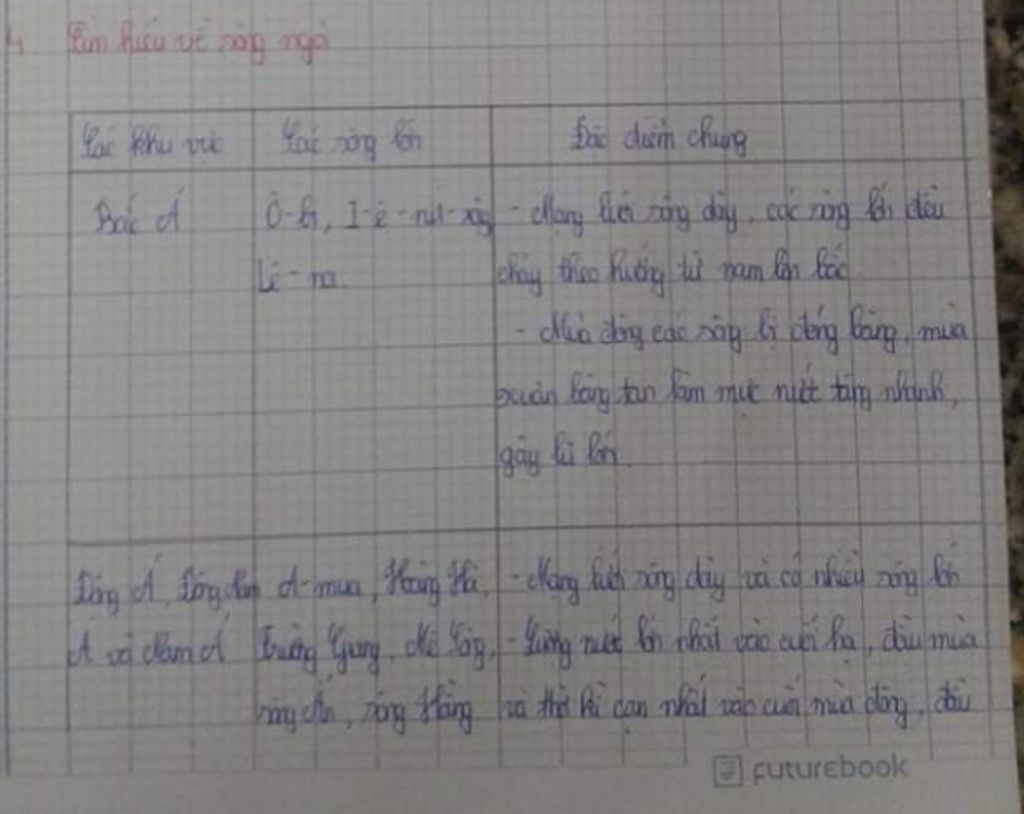 4. Tìm hiểu về sông ngòi
Các khu vực Các sông lớn Đặc điểm chung
Bắc Á Ô-bi, I-ê-nít-xây - Mạng lưới sông dày, các sông lớn đều
Lê-na. chảy theo hướng từ nam lên bắc.
- Mùa đông các sông bị đóng băng, mùa
xuân băng tan làm mực nước tăng nhanh,
gây lũ lớn.
Đông Á, Đông Nam A-mua, Hoàng Hà, - Mạng lưới sông dày và có nhiều sông lớn
Á và Nam Á Trường Giang, Mê Công, - Lượng nước lớn nhất vào cuối hạ, đầu mùa
sông Ấn, sông Hằng và thời kì cạn nhất vào cuối mùa đông, đầu
futurebook